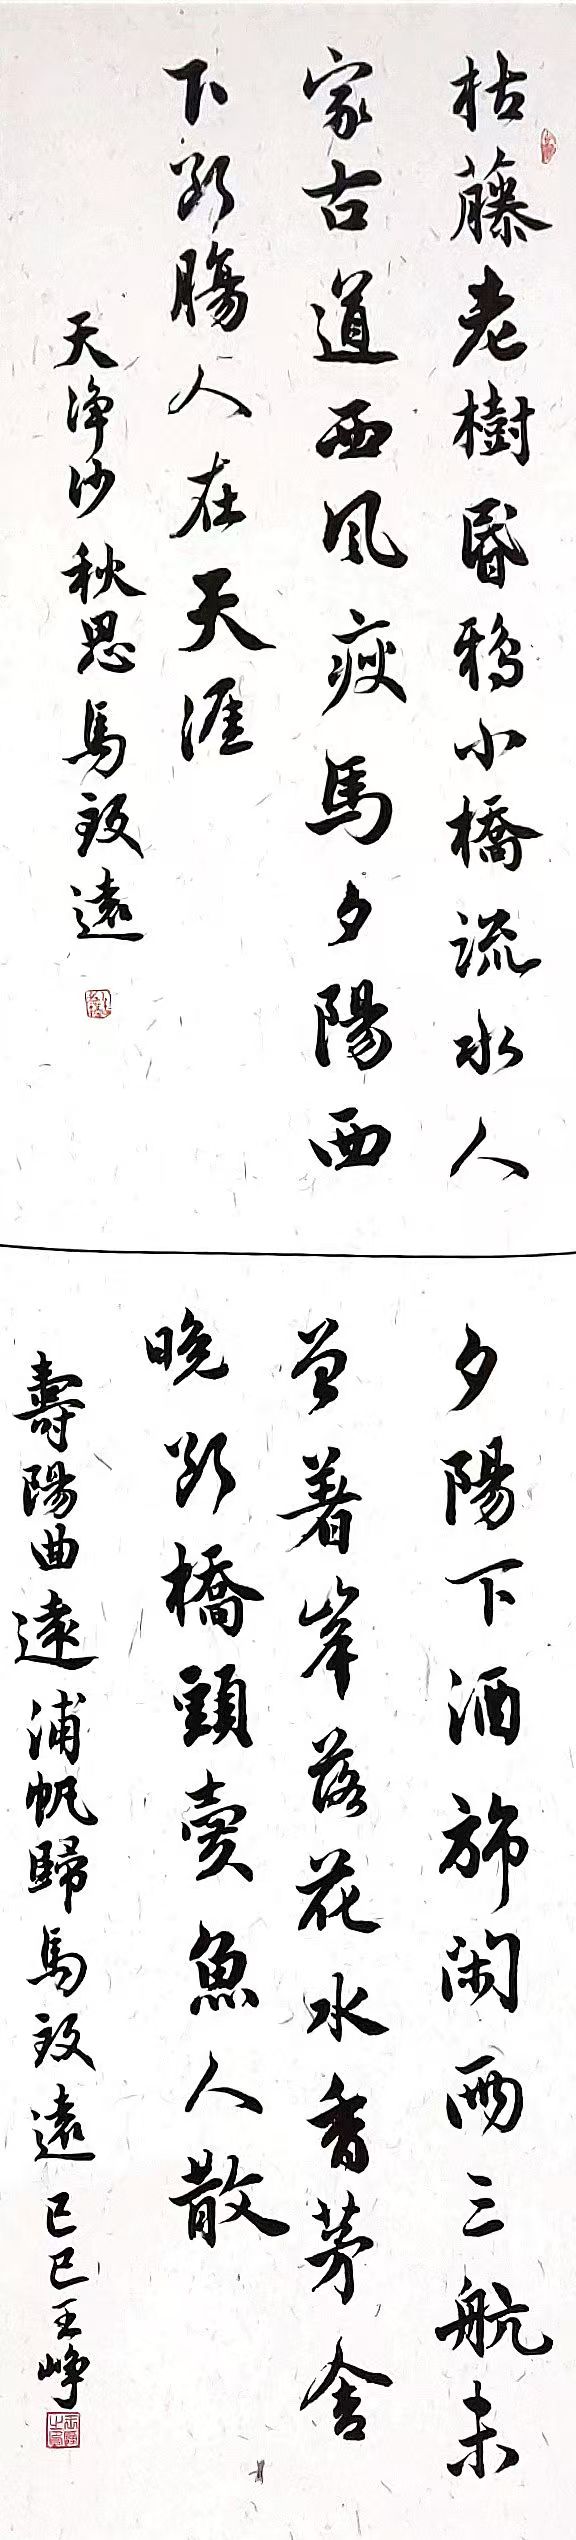 枯藤老樹昬鴉小橋流水人
家古道西風瘦馬夕陽西
下斷腸人在天涯
天淨沙秋思馬致遠
夕陽下酒旆閑兩三航未
曾著岸落花水香茅舍
晚斷橋頭賣魚人散
壽陽曲遠浦帆歸馬致遠己巳王崢